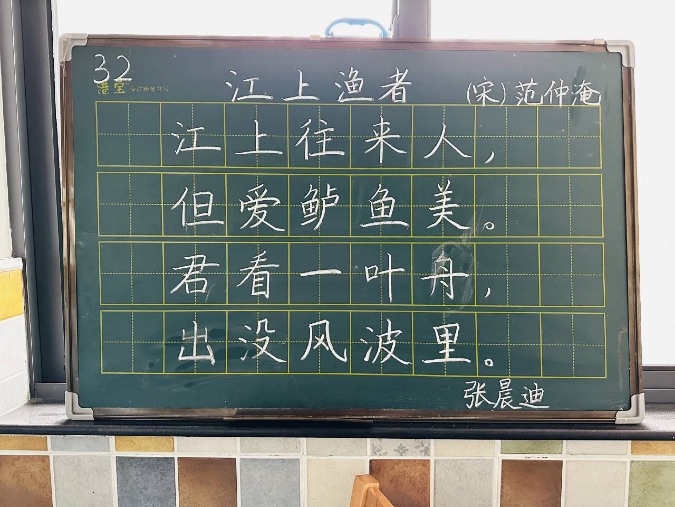 32
江上渔者 (宋)范仲淹
江上往来人,
但爱鲈鱼美。
君看一叶舟,
出没风波里。
张晨迪